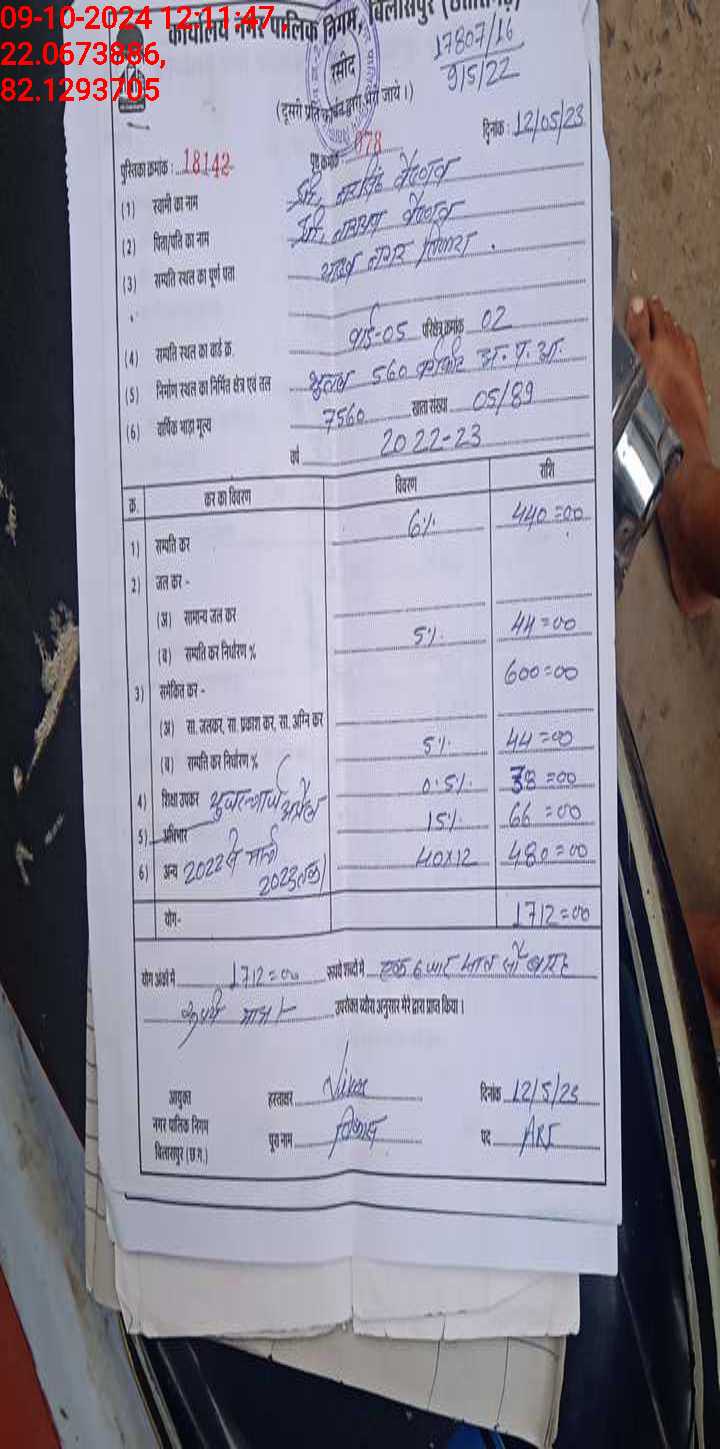 09-10-2024 12:11:47
22.0673886,
82.1293705
कार्यालय नगर पालिक निगम, बिलासपुर
रसीद
17807/16
9/5/22
(दूसरी प्रति कार्यालय द्वारा भरी जाये।)
दिनांक : 12/05/23
पुस्तिका क्रमांक : 18142 पृष्ठ क्रमांक 078
(1) स्वामी का नाम श्री, नरसिंह वैष्णव
(2) पिता/पति का नाम श्री, नारायण वैष्णव
(3) सम्पत्ति स्थल का पूर्ण पता यादव नगर तिफरा .
(4) सम्पत्ति स्थल का वार्ड क्र. वार्ड-05 परिक्षेत्र क्रमांक 02
(5) निर्माण स्थल का निर्मित क्षेत्र एवं तल भूतल 560 वर्गफीट
(6) वार्षिक भाड़ा मूल्य 7560 खाता संख्या 05/89
वर्ष 2022-23
क्र. कर का विवरण विवरण राशि
1) सम्पत्ति कर 6% 440=00
2) जल कर -
(अ) सामान्य जल कर
(ब) सम्पत्ति कर निर्धारण % 5% 44=00
3) समेकित कर - 600=00
(अ) सा. जलकर, सा. प्रकाश कर, सा. अग्नि कर
(ब) सम्पत्ति कर निर्धारण % 5% 44=00
4) शिक्षा उपकर 0.5% 38=00
5) अधिभार 15% 66=00
6) अन्य 2022 से मार्च 2023 तक 40x12 480=00
योग- 1712=00
योग अंकों में 1712=00 रूपये शब्दों में एक हजार सात सौ बारह
रूपये मात्र। उपरोक्त ब्यौरा अनुसार मेरे द्वारा प्राप्त किया।
आयुक्त हस्ताक्षर Vikas दिनांक 12/5/23
नगर पालिक निगम
बिलासपुर (छ.ग.) पूरा नाम विकास पद ARI